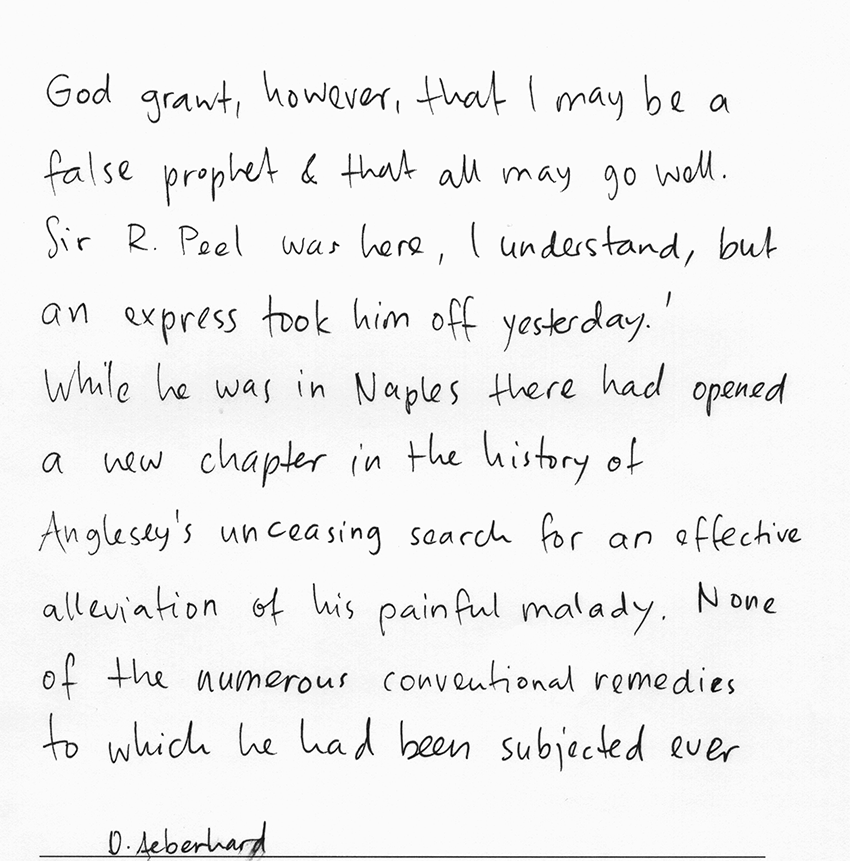 God grant, however, that I may be a
false prophet & that all may go well.
Sir R. Peel was here, I understand, but
an express took him off yesterday.'
While he was in Naples there had opened
a new chapter in the history of
Anglesey's unceasing search for an effective
alleviation of his painful malady. None
of the numerous conventional remedies
to which he had been subjected ever
D. Aeberhard